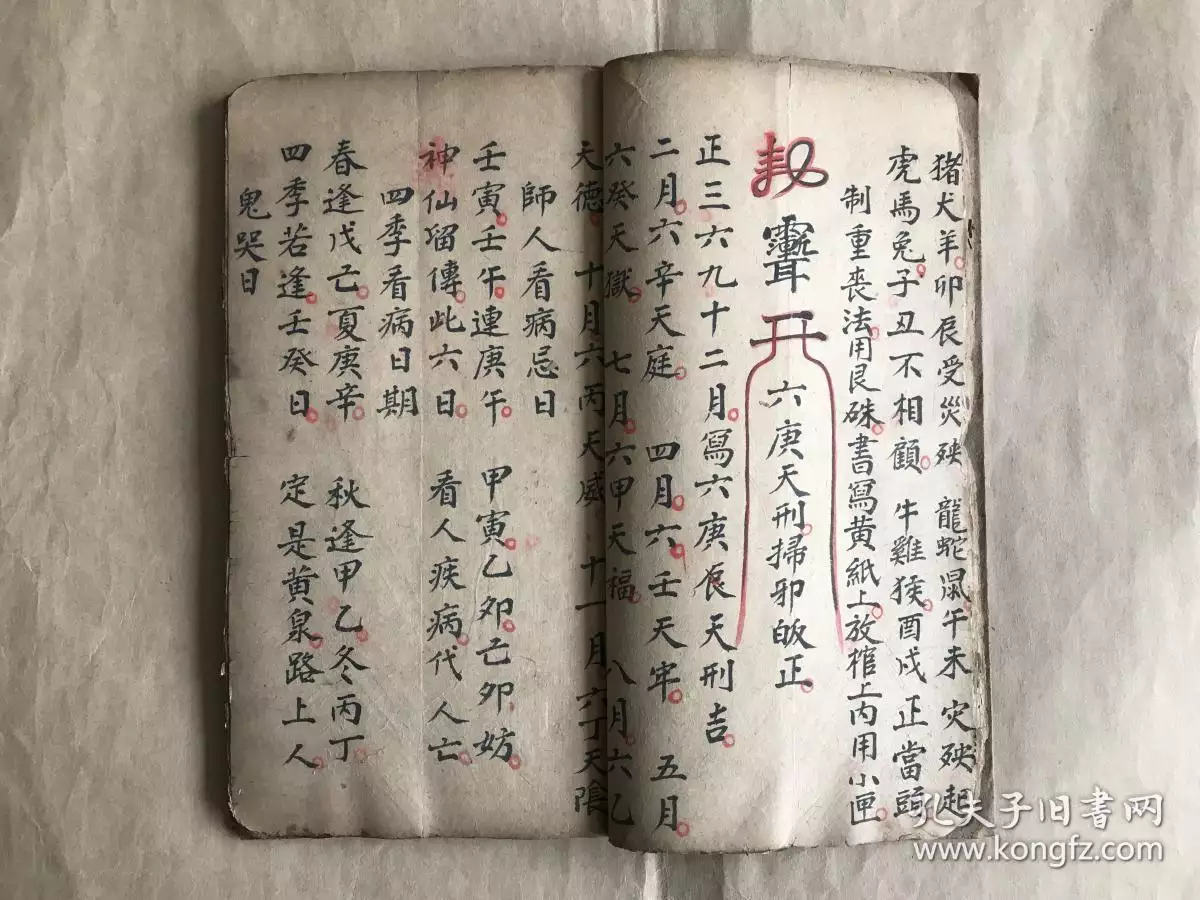 猪犬羊卯辰受災殃 龍蛇鼠午未灾殃起
虎馬兔子丑不相顧 牛雞猴酉戌正當頭
制重喪法用艮硃書寫黄紙上放棺上内用小匣
六庚天刑掃邪皈正
正三六九十二月寫六庚 天刑吉
二月六辛天庭 四月六壬天牢 五月
六癸天獄 七月六甲天福 八月六乙
天德 十月六丙天威 十一月六丁天陰
師人看病忌日
壬寅壬午連庚午 甲寅乙卯己卯妨
神仙留傳此六日 看人疾病代人亡
四季看病日期
春逢戊己夏庚辛 秋逢甲乙冬丙丁
四季若逢壬癸日 定是黄泉路上人
鬼哭日
孔夫子旧书网
www.kongfz.com